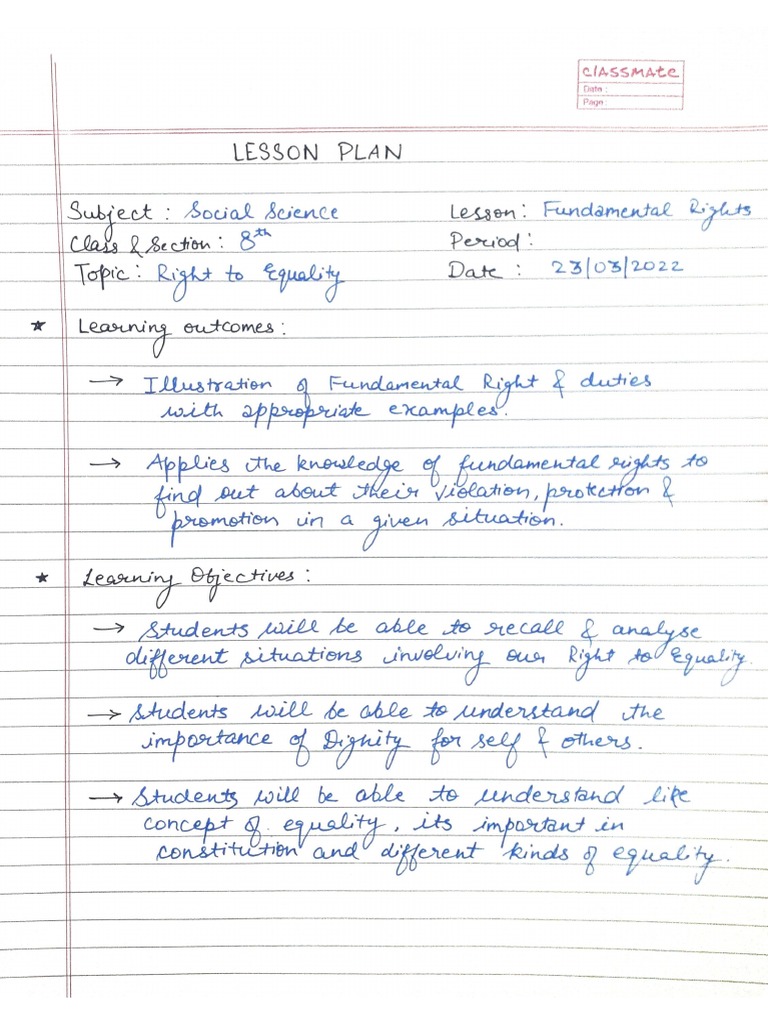 classmate
Date :
Page :
LESSON PLAN
Subject : Social Science Lesson: Fundamental Rights
Class & Section : 8th Period :
Topic : Right to Equality Date : 23/03/2022
★ Learning outcomes :
→ Illustration of Fundamental Right & duties
with appropriate examples.
→ Applies the knowledge of fundamental rights to
find out about their violation, protection &
promotion in a given situation.
★ Learning Objectives :
→ Students will be able to recall & analyse
different situations involving our Right to Equality.
→ Students will be able to understand the
importance of Dignity for self & others.
→ Students will be able to understand like
concept of equality, its important in
constitution and different kinds of equality.